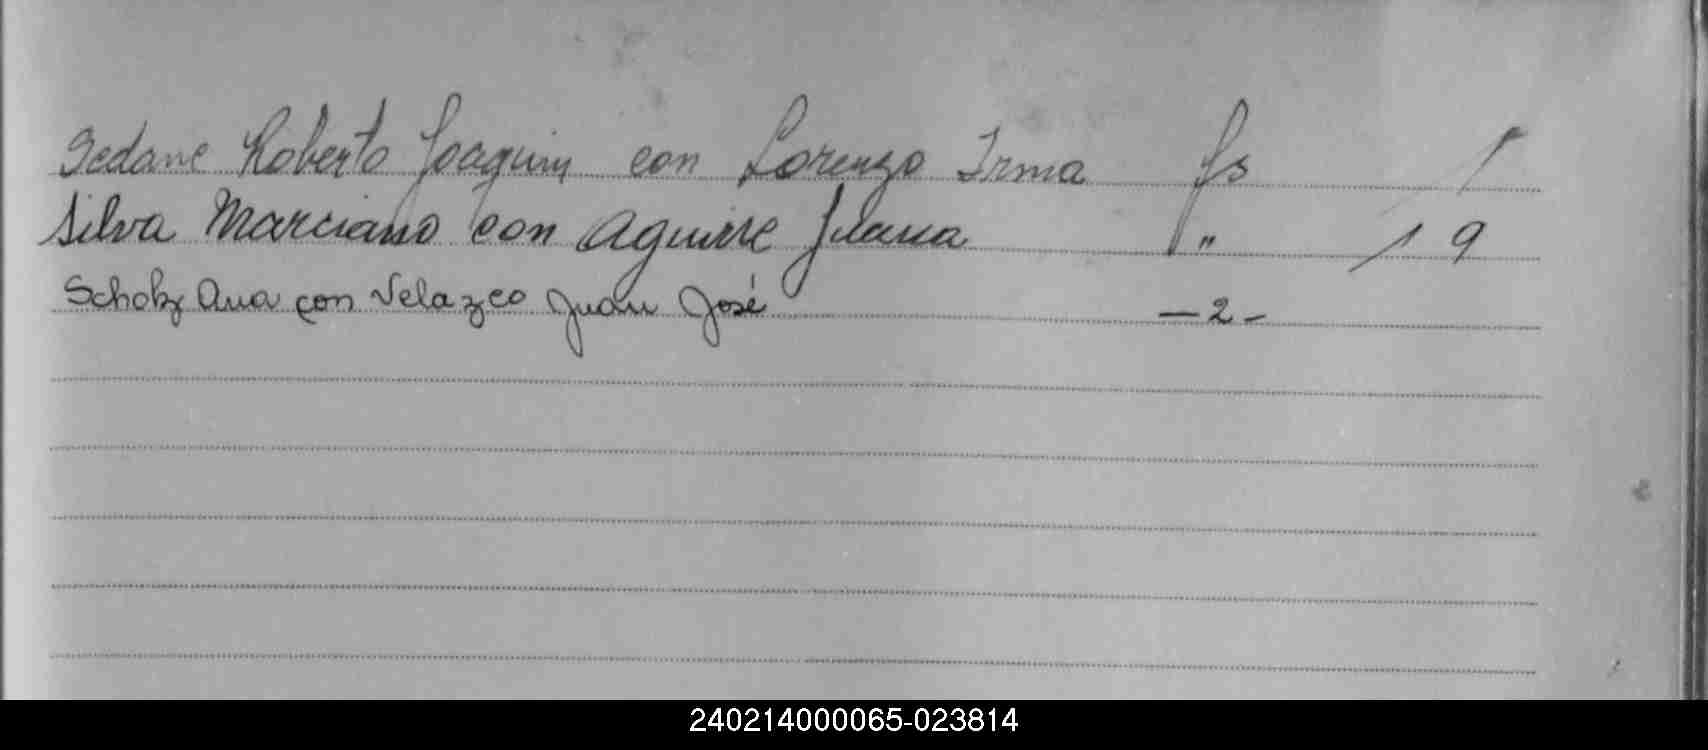 Sedane Roberto Joaquim con Lorenzo Irma fs 1
Silva Marciano con Aguirre Juana " 19
Scholz Ana con Velazco Juan José — 2 -
240214000065-023814